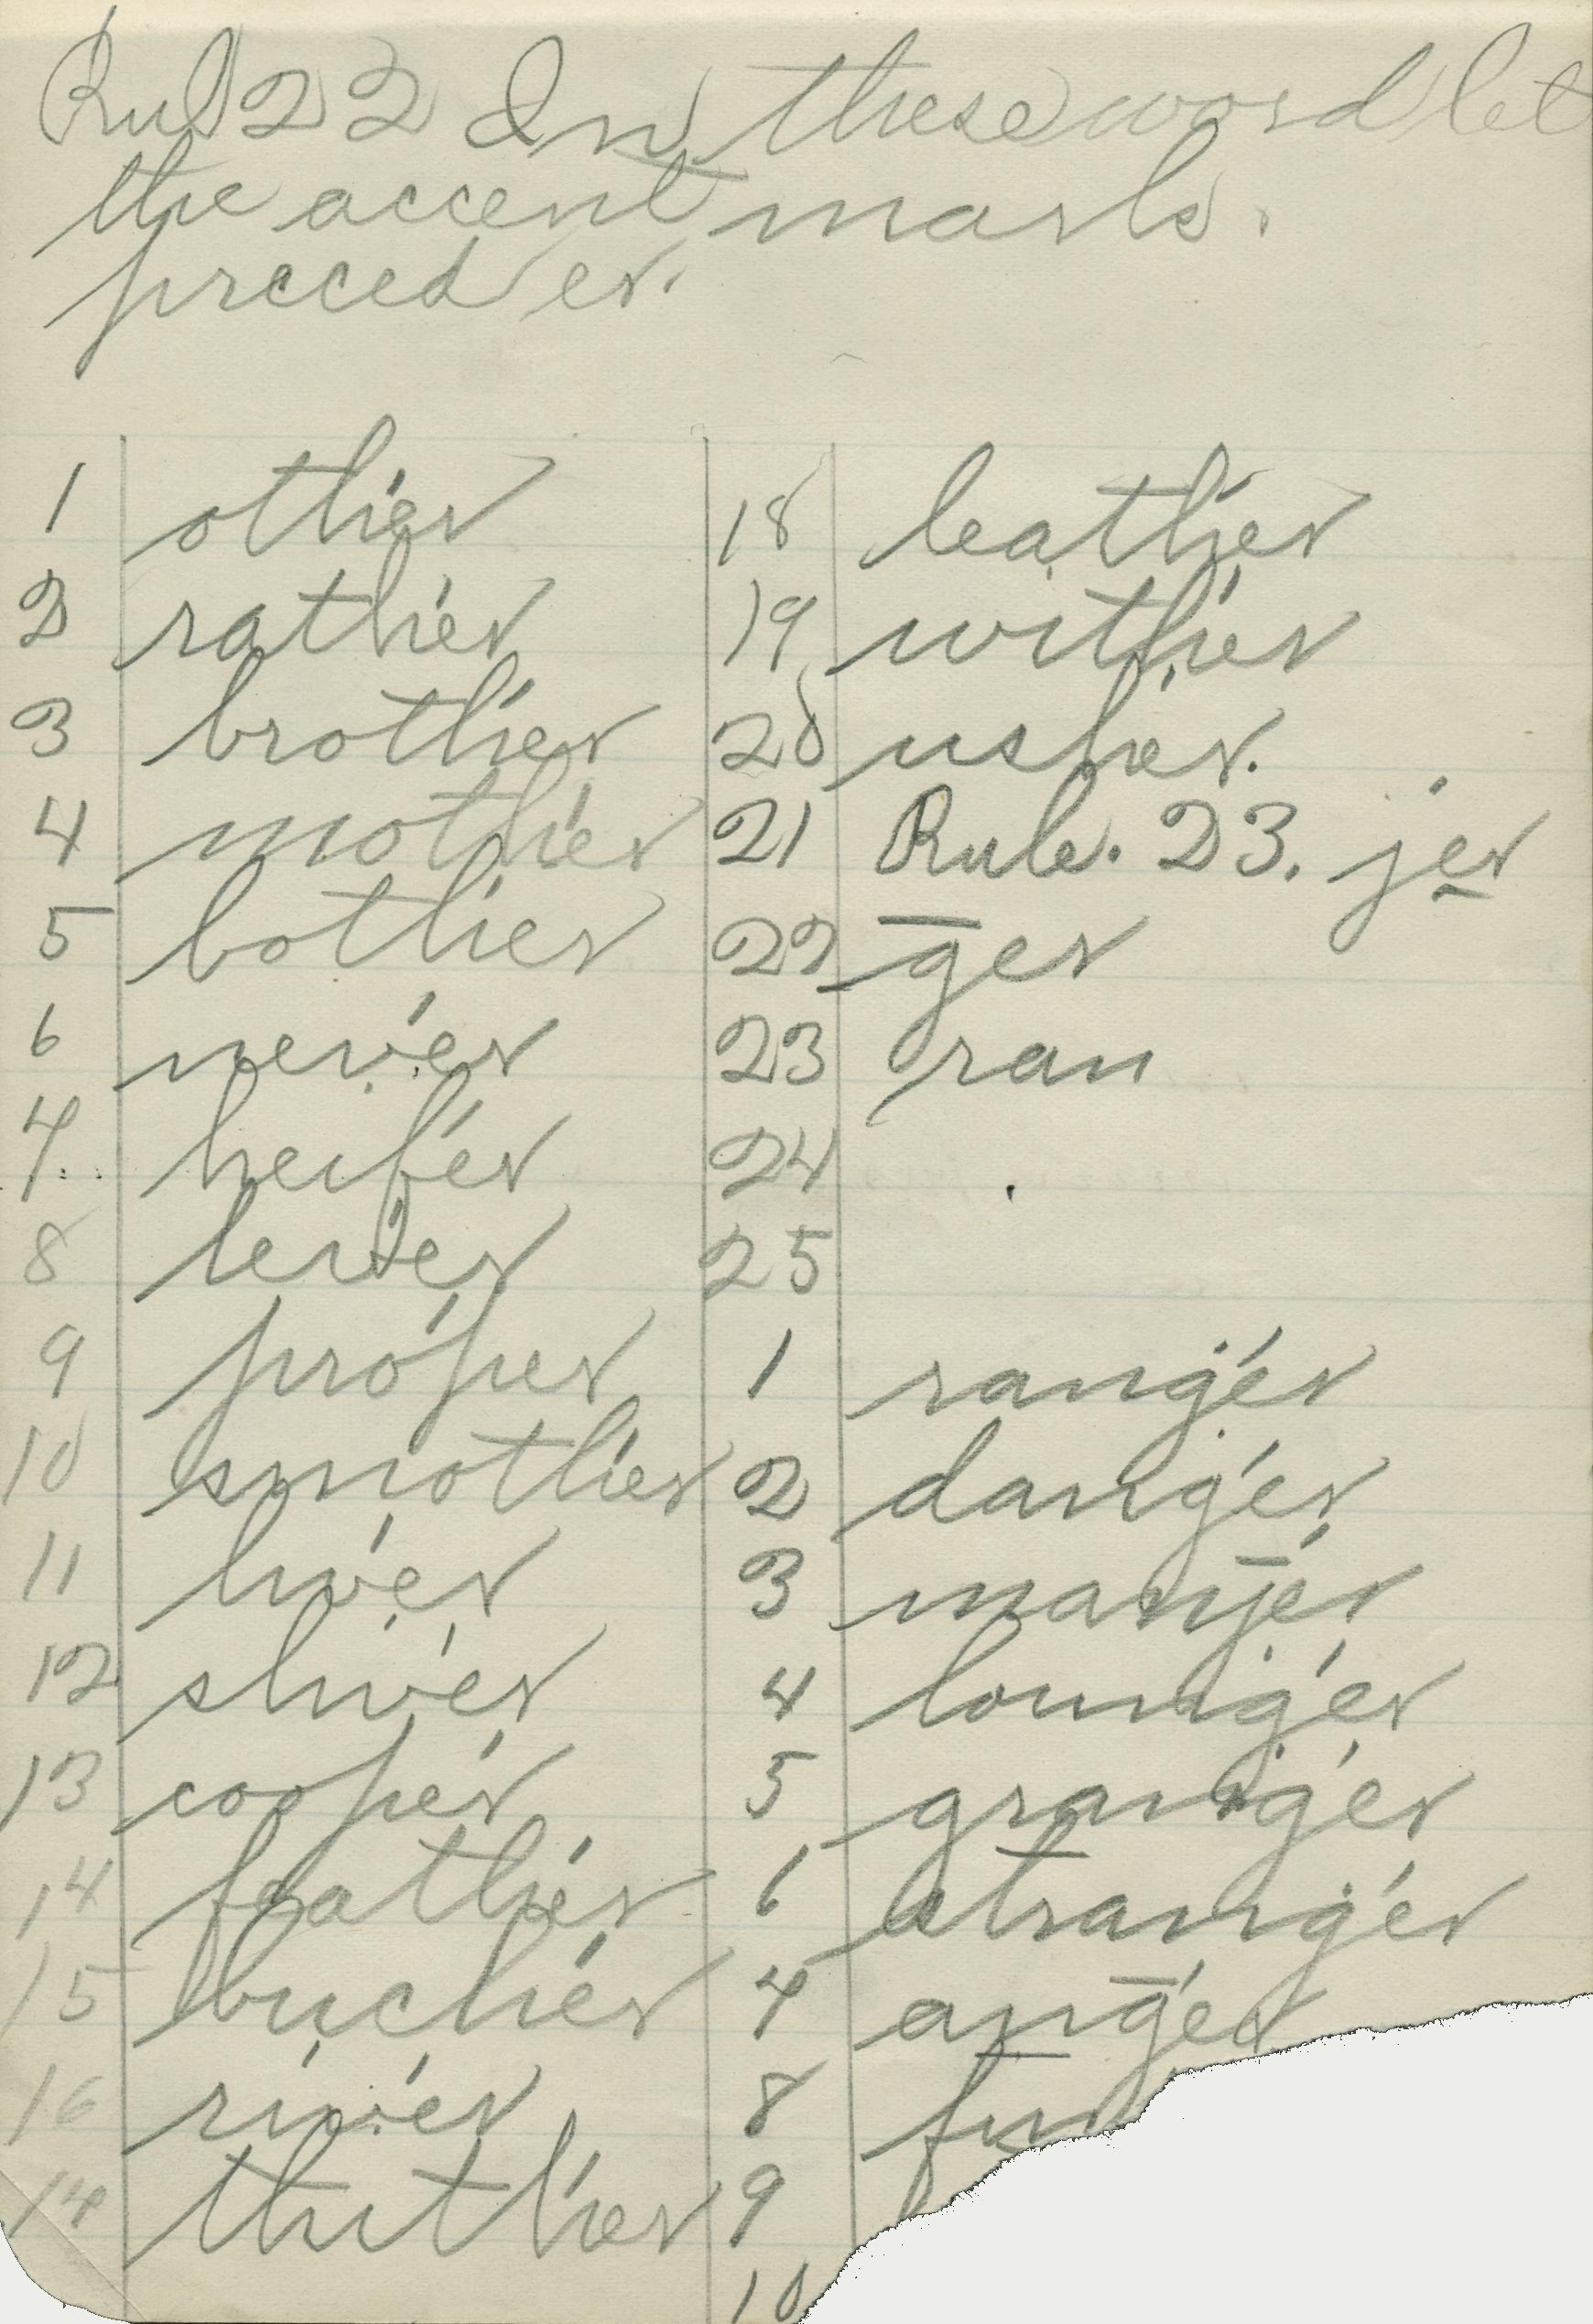 Rul 22 In these word let
the accent marks.
preced er.
1 oth'er
2 rath'er
3 broth'er
4 moth'er
5 both'er
6 nev'er
7 heif'er
8 lev'er
9 prop'er
10 smoth'er
11 liv'er
12 sliv'er
13 coop'er
14 feath'er
15 buch'er
16 riv'er
17 thith'er
18 leath'er
19 with'er
20 ush'er.
21 Rule. 23. jer
22 ger
23 ran
24
25
1 rang'er
2 dang'er
3 manj'er
4 loung'er
5 grang'er
6 strang'er
7 ang'er
8
9
10